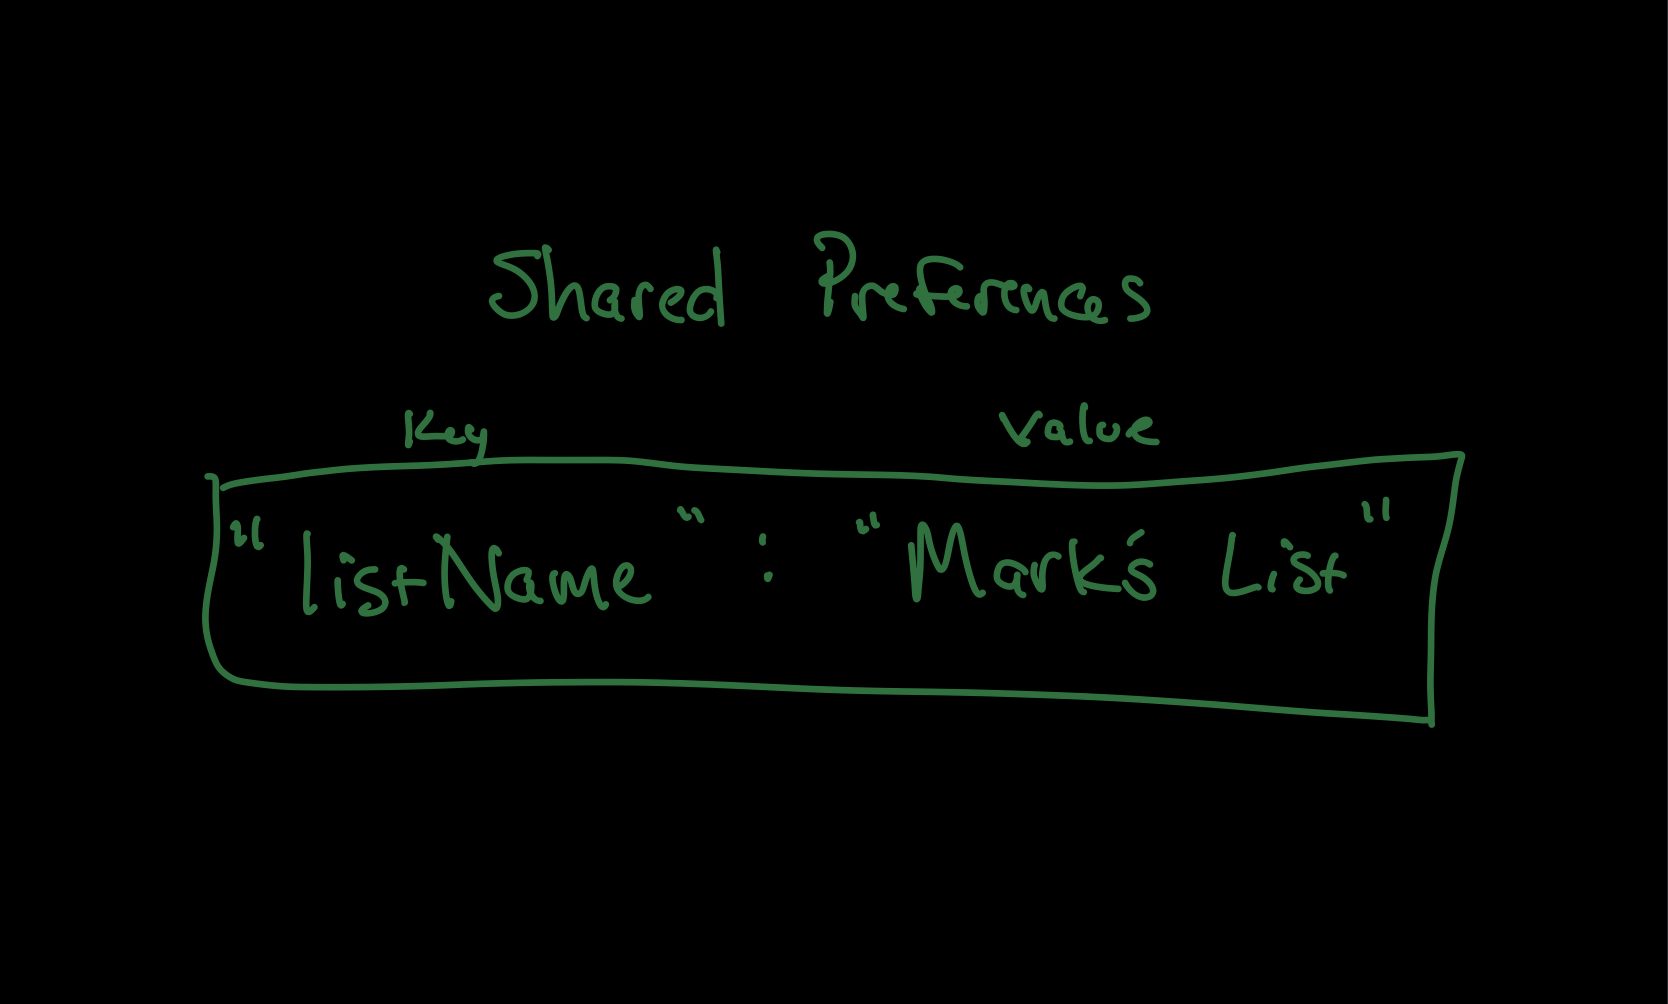 Shared Preferences
Key Value
"listName" : "Mark's List"